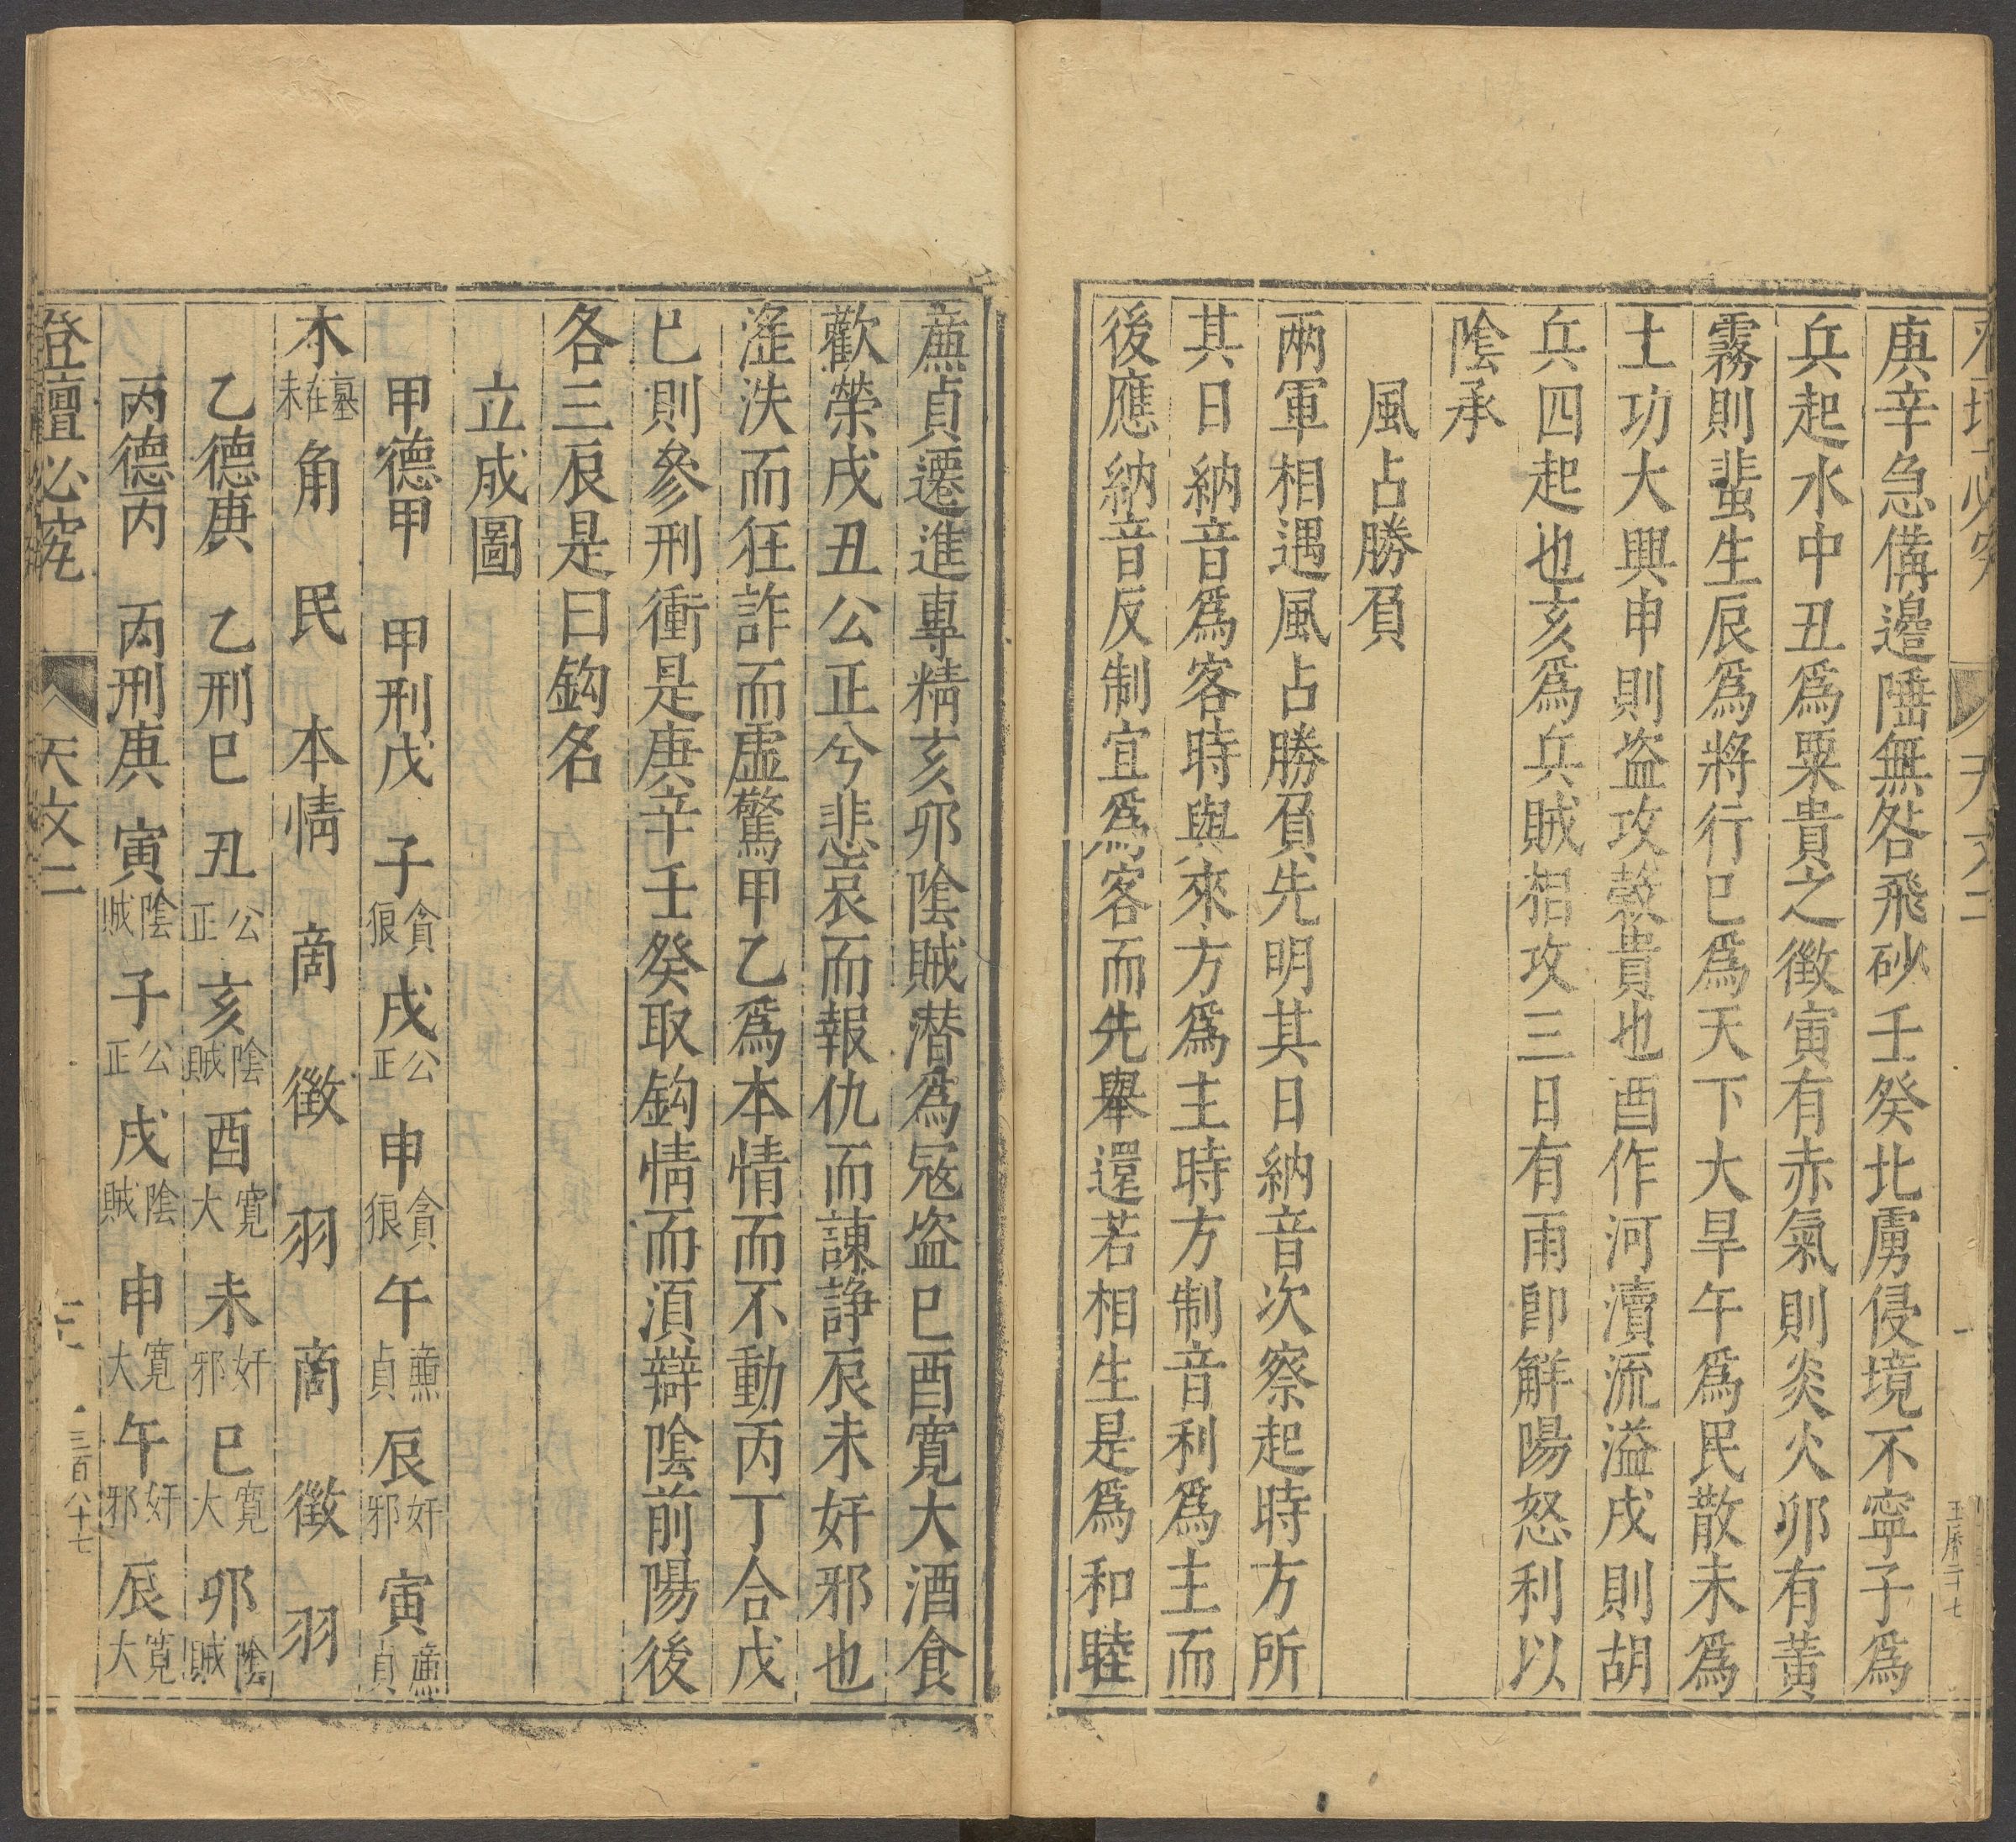 登壇必究 天文二
庚辛急備邊陲無咎飛砂壬癸北虜侵境不寧子為
兵起水中丑為粟貴之徵寅有赤氣則炎火卯有黃
霧則蜚生辰為將行巳為天下大旱午為民散未為
土功大興申則盜攻穀貴也酉作河瀆流溢戌則胡
兵四起也亥為兵賊相攻三日有雨卽解陽怒利以
陰承
風占勝負
兩軍相遇風占勝負先明其日納音次察起時方所
其日納音為客時與來方為主時方制音利為主而
後應納音反制宜為客而先舉還若相生是為和睦
亷貞遷進專精亥卯陰賊潜為冦盗巳酉寛大酒食
歡榮戌丑公正兮悲哀而報仇而諫諍辰未奸邪也
滛泆而狂詐而虛驚甲乙為本情而不動丙丁合戊
巳則參刑衝是庚辛壬癸取鈎情而湏辯陰前陽後
各三辰是曰鈎名
立成圖
甲德甲 甲刑戊 子貪狼 戌公正 申貪狼 午亷貞 辰奸邪 寅亷貞
木墓在未 角 民 本情 商 徵 羽 商 徵 羽
乙德庚 乙刑巳 丑公正 亥陰賊 酉寛大 未奸邪 巳寛大 卯陰賊
丙德丙 丙刑庚 寅陰賊 子公正 戌陰賊 申寛大 午奸邪 辰寛大
登壇必究 天文二 三百八十七